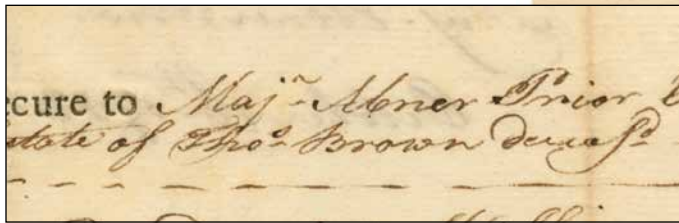 ecure to Maj.r Abner Prior
state of Tho.s Brown deceas.d